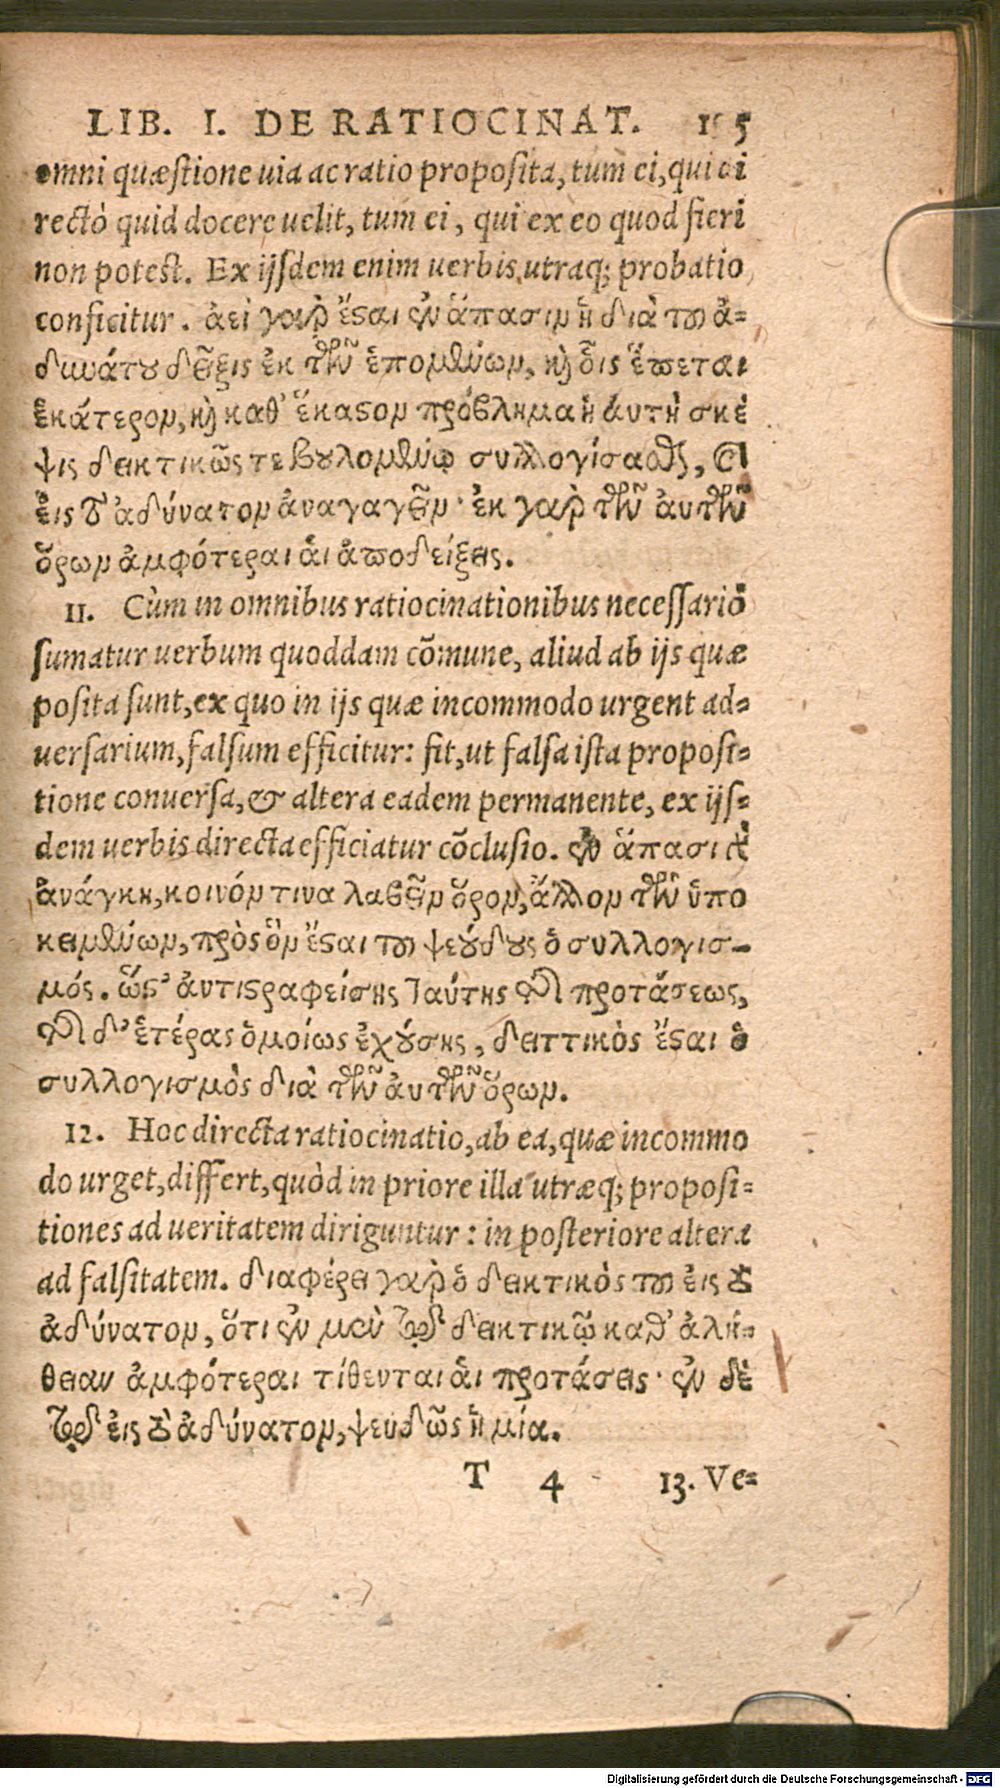 LIB. I. DE RATIOCINAT. 1 5
omni quæstione uia ac ratio proposita, tum ei, qui di
rectò quid docere uelit, tum ei, qui ex eo quod fieri
non potest. Ex ijsdem enim uerbis utraq; probatio
conficitur. ἀεὶ γαρ ἔϛαι ἐν ἅπασιν ἡ διὰ τοῦ ἀ-
δυνάτου δεῖξις ἐκ τῶν ἑπομένων, καὶ οἷς ἕπεται
ἑκάτερον, καὶ καθ' ἕκαϛον πρόβλημα ἡ ἀυτὴ σκέ
ψις δεικτικῶς τε βουλομένῳ συλλογίσασθαι, καὶ
ἐις τὸ ἀδύνατον ἀναγαγεῖν· ἐκ γαρ τῶν ἀυτῶν
ὅρων ἀμφότεραι ἁι ἀποδείξεις.
11. Cùm in omnibus ratiocinationibus necessariò
sumatur uerbum quoddam cōmune, aliud ab ijs quæ
posita sunt, ex quo in ijs quæ incommodo urgent ad-
uersarium, falsum efficitur: fit, ut falsa ista proposi-
tione conuersa, & altera eadem permanente, ex ijs-
dem uerbis directa efficiatur cōclusio. ἐν ἅπασι
ἀνάγκη, κοινόν τινα λαβεῖν ὅρον, ἄλλον τῶν ὑπο
κειμένων, πρὸς ὃν ἔϛαι τοῦ ψεύδους ὁ συλλογισ-
μός. ὥϛ' ἀντιϛραφείσης ταύτης τῆς προτάσεως,
τῆς δ' ἑτέρας ὁμοίως ἐχούσης, δειττικὸς ἔϛαι ὁ
συλλογισμὸς διὰ τῶν ἀυτῶν ὅρων.
12. Hoc directa ratiocinatio, ab ea, quæ incommo
do urget, differt, quòd in priore illa utræq; proposi-
tiones ad ueritatem diriguntur: in posteriore altera
ad falsitatem. διαφέρει γαρ ὁ δεικτικὸς τοῦ ἐις τὸ
ἀδύνατον, ὅτι ἐν μεν τῷ δεικτικῷ καθ' ἀλή-
θειαν ἀμφότεραι τίθενται ἁι προτάσεις· ἐν δὲ
τῷ ἐις τὸ ἀδύνατον, ψευδῶς ἡ μία.
T 4 13. Ve-
Digitalisierung gefördert durch die Deutsche Forschungsgemeinschaft - DFG